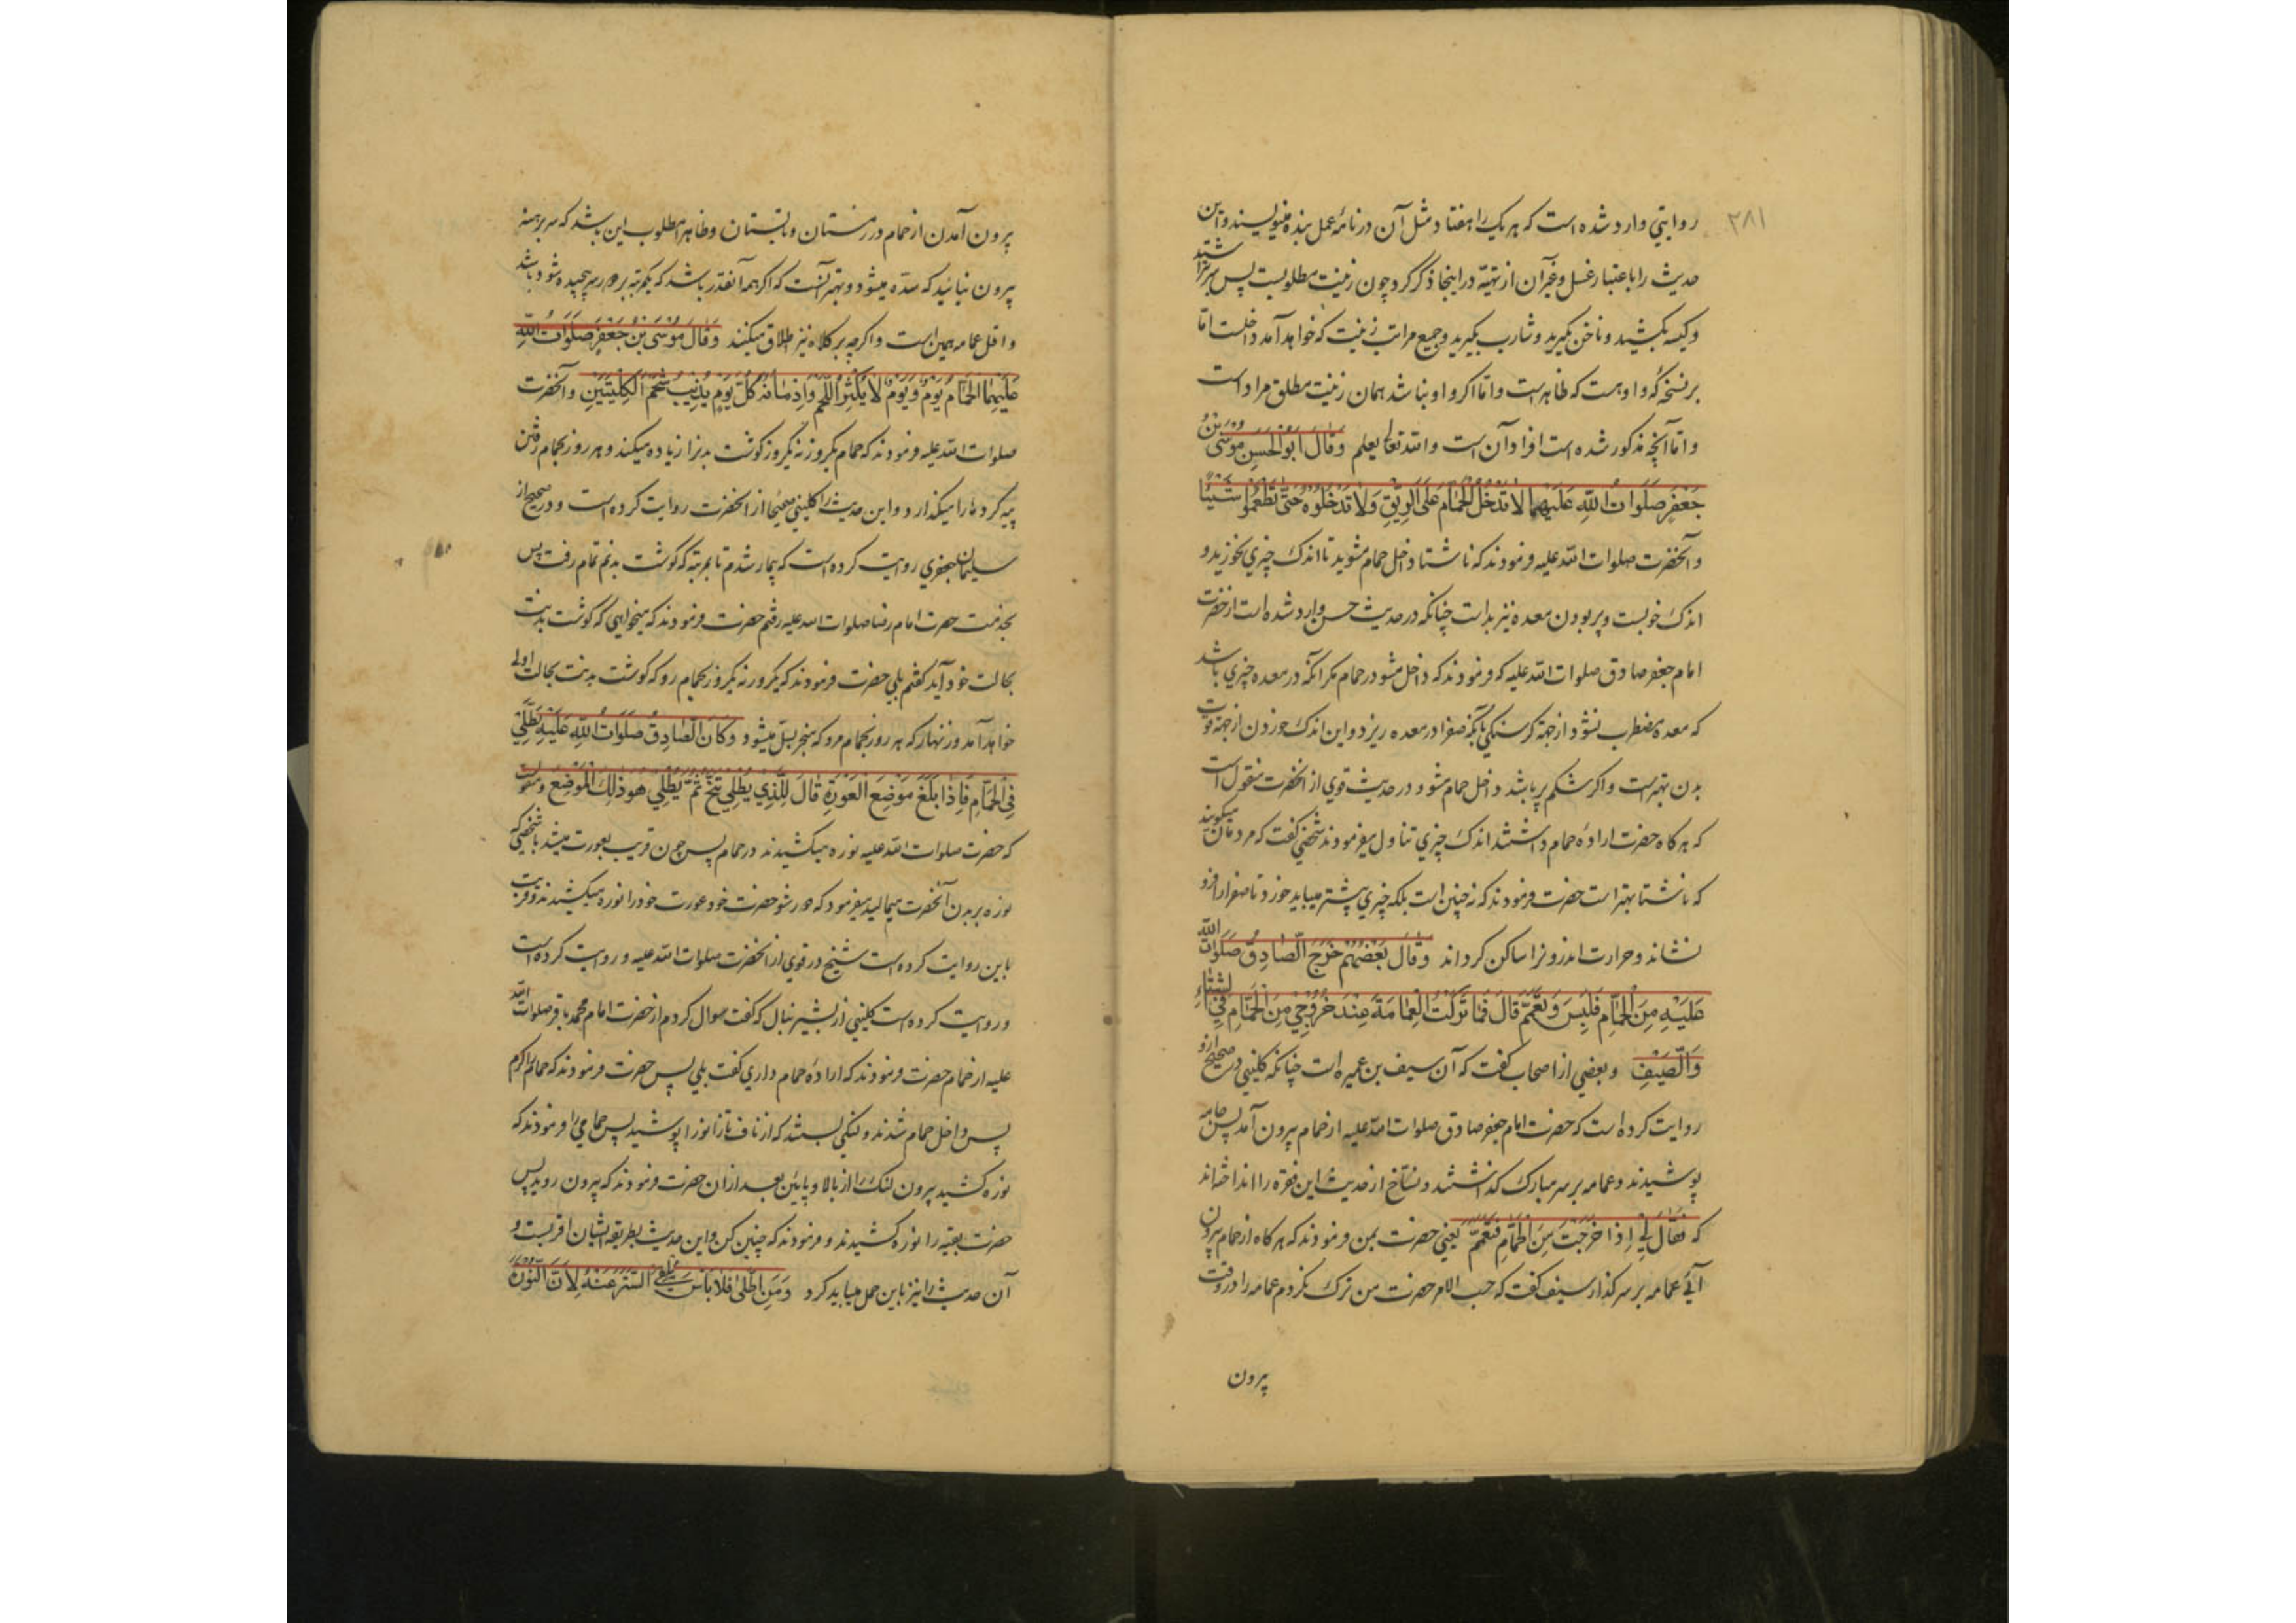 ۲۸۱
روایتي وارد شده است که هر یک را هفتاد مثل آن در نامهٔ عمل بنده مینویسند و این
حدیث را باعتبار غسل و غیر آن از تهیّه در اینجا ذکر کرد چون زینت مطلوبست پس سر بتراشید
و کیسه بکشید و ناخن بگیرید و شارب بگیرید و جمیع مراتب زینت که خواهد آمد داخلست امّا
بر نسخهٔ که واو هست که ظاهر است و امّا اکر واو نباشد همان زینت مطلق مراد است
و امّا آنچه مذکور شده است افراد آن است والله تعالی یعلم وَقَالَ اَبُو الْحَسَنِ مُوسَی بْنُ
جَعْفَرٍ صَلَوَاتُ اللّهِ عَلَیْهِمَا لَا تَدْخُلُ الْحَمَّامَ عَلَی الرِّیقِ وَلَا تَدْخُلُوهُ حَتّٰی تَطْعَمُوا شَیْئًا
و آنحضرت صلوات الله علیه فرمودند که ناشتا داخل حمام مشوید تا اندک چیزي بخورید و
اندک خوبست و پر بودن معده نیز بد است چنانکه در حدیث حسن وارد شده است از حضرت
امام جعفر صادق صلوات الله علیه که فرمودند که داخل مشو در حمام مکر آنکه در معده چیزي باشد
که معده مضطرب نشود از جهة کرسنکي یا آنکه صفرا در معده ریزد و این اندک خوردن از جهة قوت
بدن بهتر است و اکر شکم پر باشد داخل حمام مشو و در حدیث قوي از آنحضرت منقول است
که هر کاه حضرت ارادهٔ حمام داشتند اندک چیزي تناول میفرمودند شخصي کفت که مردمان میکویند
که ناشتا بهتر است حضرت فرمودند که نه چنین است بلکه چیزي پیشتر میباید خورد تا صفرا را فرو
نشاند و حرارت اندرونرا ساکن کرداند وَقَالَ بَعْضُهُمْ خَرَجَ الصَّادِقُ صَلَوَاتُ اللّهِ
عَلَیْهِ مِنَ الْحَمَّامِ فَلَبِسَ وَتَعَمَّمَ قَالَ فَمَا تَرَکْتُ الْعِمَامَةَ عِنْدَ خُرُوجِي مِنَ الْحَمَّامِ فِي الشِّتَاءِ
وَالصَّیْفِ و بعضي از اصحاب کفت که آن سیف بن عمیره است چنانکه کلیني در صحیح ازو
روایت کرده است که حضرت امام جعفر صادق صلوات الله علیه از حمام بیرون آمد پس جامه
پوشیدند و عمامه بر سر مبارک کذاشتند و نسّاخ از حدیث این فقره را انداختهاند
که فَقَالَ لِي اِذَا خَرَجْتَ مِنَ الْحَمَّامِ فَتَعَمَّمْ یعني حضرت بمن فرمودند که هر کاه از حمام بیرون
آئي عمامه بر سر کذار سیف کفت که حسب الامر حضرت من ترک نکردم عمامه را در وقت
بیرون
بیرون آمدن از حمام در زمستان و تابستان و ظاهرا مطلوب این باشد که سر برهنه
بیرون نیائید که سدّه میشود و بهتر آنست که اکر همه آنقدر باشد که یکمرتبه بر دور سر پیچیده شود باشد
و اقل عمامه همین است و اکرچه بر کلاه نیز اطلاق میکنند وَقَالَ مُوسَی بْنُ جَعْفَرٍ صَلَوَاتُ اللّهِ
عَلَیْهِمَا الْحَمَّامُ یَوْمٌ وَیَوْمٌ لَا یُکْثِرُ اللَّحْمَ وَاِدْمَانُهُ کُلَّ یَوْمٍ یُذِیبُ شَحْمَ الْکُلْیَتَیْنِ و آنحضرت
صلوات الله علیه فرمودند که حمام یکروز نه یکروز کوشت بدنرا زیاده میکند و هر روز بحمام رفتن
پیه کردها را میکدازد و این حدیث را کلیني صحیحا از آنحضرت روایت کرده است و در صحیح از
سلیمان جعفري روایت کرده است که بیمار شدم تا بمرتبه که کوشت بدنم تمام رفت پس
بخدمت حضرت امام رضا صلوات الله علیه رفتم حضرت فرمودند که میخواهي که کوشت بدنت
بحالت خود آید کفتم بلي حضرت فرمودند که یکروز نه یکروز بحمام رو که کوشت بدنت بحالت اولي
خواهد آمد و زنهار که هر روز بحمام مرو که منجر بسل میشود وَکَانَ الصَّادِقُ صَلَوَاتُ اللّهِ عَلَیْهِ یَطَّلِي
فِي الْحَمَّامِ فَاِذَا بَلَغَ مَوْضِعَ الْعَوْرَةِ قَالَ لِلَّذِي یَطْلِي تَنَحَّ ثُمَّ یَطْلِي هُوَ ذٰلِکَ الْمَوْضِعَ و منقولست
که حضرت صلوات الله علیه نوره میکشیدند در حمام پس چون قریب بعورت میشد با شخصي که
نوره بر بدن آنحضرت میمالید میفرمود که دور شو حضرت خود عورت خود را نوره میکشیدند و قریب
باین روایت کرده است شیخ در قوي از آنحضرت صلوات الله علیه و روایت کرده است
و روایت کرده است کلیني از بشیر نبال که کفت سوال کردم از حضرت امام محمد باقر صلوات الله
علیه از حمام حضرت فرمودند که ارادهٔ حمام داري کفت بلي پس حضرت فرمودند که حمام را کرم
پس داخل حمام شدند و لنکي بستند که از ناف تا زانو را پوشید پس حمامي را فرمودند که
نوره کشید بیرون لنک را از بالا و پایین بعد از ان حضرت فرمودند که بیرون رو پس
حضرت بقیه را نوره کشیدند و فرمودند که چنین کن و این حدیث بطریقه ایشان اقربست و
آن حدیث را نیز باین حمل میباید کرد وَمَنِ اطَّلٰی فَلَا بَأْسَ السَّتْرَ عَنْهُ لِاَنَّ النُّورَةَ